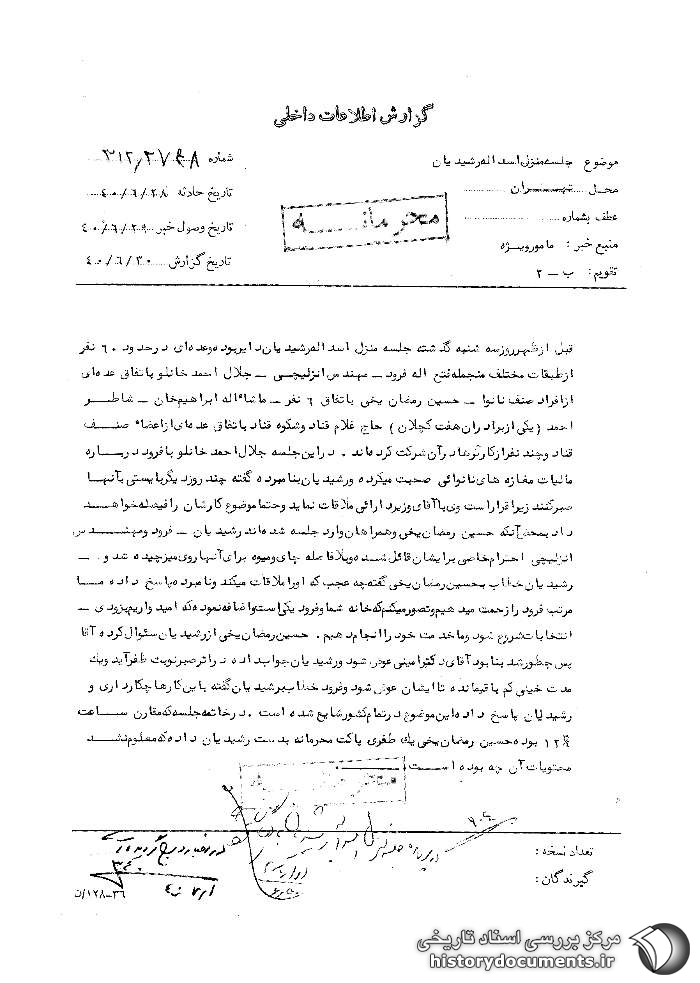 گزارش اطلاعات داخلی
موضوع جلسه منزل اسداله رشیدیان
شماره ۳۱۲/۲۷۴۸
محل تهران
تاریخ حادثه ۴۰/۶/۲۸
عطف بشماره
تاریخ وصول خبر ۴۰/۶/۲۹
منبع خبر: مامور ویژه
تاریخ گزارش ۴۰/۶/۳۰
تقویم: ب ـ ۲
محرمانه
قبل از ظهر روز سه شنبه گذشته جلسه منزل اسداله رشیدیان دایر بوده و عده‌ای در حدود ۶۰ نفر
از طبقات مختلف منجمله فتح اله فرود ـ مهندس انزلیچی ـ جلال احمد خانلو باتفاق عده‌ای
از افراد صنف نانوا ـ حسین رمضان یخی باتفاق ۶ نفر ـ ماشاءاله ابراهیم‌خان ـ شاطر
احمد (یکی از برادران هفت کچلان) حاج غلام قناد و شکوه قناد باتفاق عده‌ای از اعضاء صنف
قناد و چند نفر از کارگرها در آن شرکت کرده‌اند . در این جلسه جلال احمد خانلو با فرود درباره
مالیات مغازه های نانوائی صحبت میکرده و رشیدیان بنامبرده گفته چند روز دیگر بایستی بآنها
صبر کنند زیرا قرار است وی با آقای وزیر دارائی ملاقات نماید و حتما موضوع کارشان را فیصله خواهد
داد بمحض آنکه حسین رمضان یخی و همراهان وارد جلسه شده‌اند رشیدیان ـ فرود و مهندس
انزلیچی احترام خاصی برایشان قائل شده و بلافاصله چای و میوه برای آنها روی میز چیده شد و ـ
رشیدیان خطاب بحسین رمضان یخی گفته چه عجب که او را ملاقات میکند و نامبرده پاسخ داده ما
مرتب فرود را زحمت میدهیم و تصور میکنم که خانه شما و فرود یکی است و اضافه نموده که امیدواریم بزودی ـ
انتخابات شروع شود و ما خدمت خود را انجام دهیم . حسین رمضان یخی از رشیدیان سئوال کرده آقا
پس چطور شد بنا بود آقای دکتر امینی عوض شود و رشیدیان جواب داده در اثر صبر نوبت ظفر آید و یک
مدت خیلی کم باقیمانده تا ایشان عوض شود و فرود خطاب برشیدیان گفته باین کارها چکار داری و
رشیدیان پاسخ داده این موضوع در تمام کشور شایع شده است . در خاتمه جلسه که مقارن ساعت
۱۲ بوده حسین رمضان یخی یک طغری پاکت محرمانه بدست رشیدیان داده که معلوم نشد
محتویات آن چه بوده است
تعداد نسخه :
گیرندگان :
۳۴۰
۳۶-۱۲۸/ن
مرکز بررسی اسناد تاریخی
historydocuments.ir